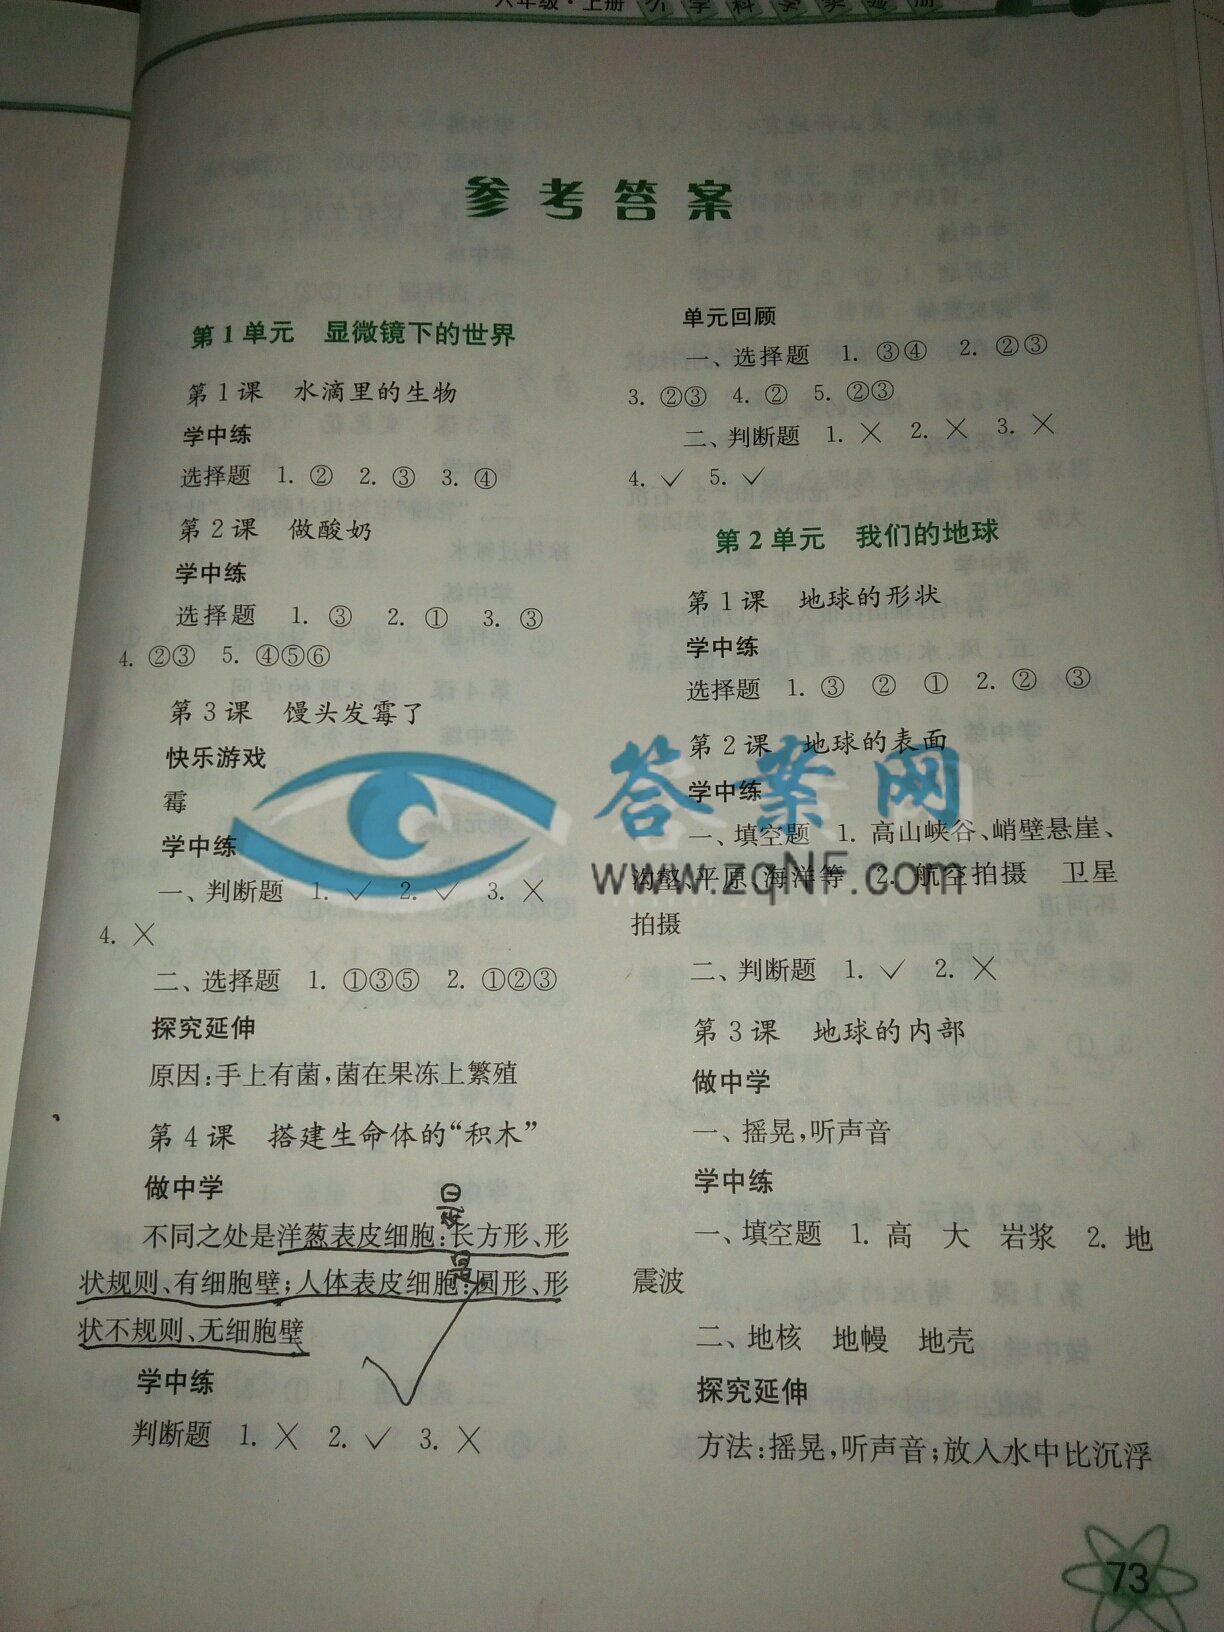 六年级·上册 小学科学实验册
参考答案
第1单元 显微镜下的世界
第1课 水滴里的生物
学中练
选择题 1. ② 2. ③ 3. ④
第2课 做酸奶
学中练
选择题 1. ③ 2. ① 3. ③
4. ②③ 5. ④⑤⑥
第3课 馒头发霉了
快乐游戏
霉
学中练
一、判断题 1. ✓ 2. ✓ 3. ✕
4. ✕
二、选择题 1. ①③⑤ 2. ①②③
探究延伸
原因:手上有菌,菌在果冻上繁殖
第4课 搭建生命体的“积木”
做中学
不同之处是洋葱表皮细胞:长方形、形
状规则、有细胞壁;人体表皮细胞:圆形、形
是
状不规则、无细胞壁
学中练
判断题 1. ✕ 2. ✓ 3. ✕
单元回顾
一、选择题 1. ③④ 2. ②③
3. ②③ 4. ② 5. ②③
二、判断题 1. ✕ 2. ✕ 3. ✕
4. ✓ 5. ✓
第2单元 我们的地球
第1课 地球的形状
学中练
选择题 1. ③ ② ① 2. ② ③
第2课 地球的表面
学中练
一、填空题 1. 高山峡谷、峭壁悬崖、
沟壑 平原 海洋等 2. 航空拍摄 卫星
拍摄
二、判断题 1. ✓ 2. ✕
第3课 地球的内部
做中学
一、摇晃,听声音
学中练
一、填空题 1. 高 大 岩浆 2. 地
震波
二、地核 地幔 地壳
探究延伸
方法:摇晃,听声音;放入水中比沉浮
答案网
www.zqNF.com
73